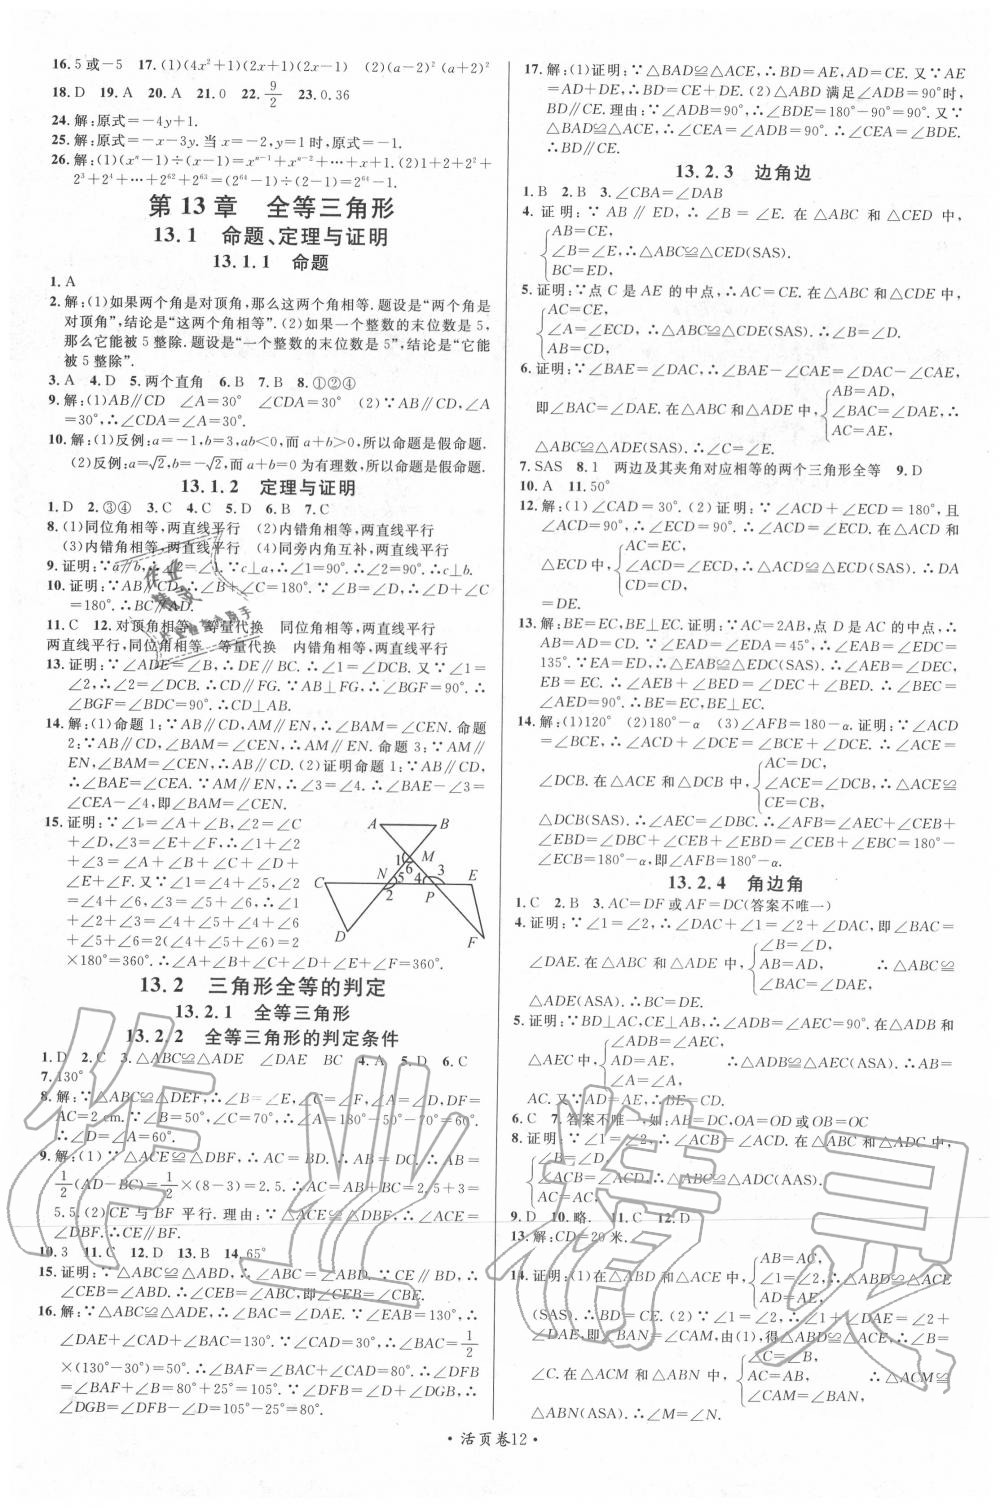 16. 5 或-5  17. (1)(4x²+1)(2x+1)(2x-1)  (2)(a-2)²(a+2)²
18. D  19. A  20. A  21. 0  22. 9/2  23. 0.36
24. 解:原式=-4y+1.
25. 解:原式=-x-3y. 当 x=-2, y=1 时,原式=-1.
26. 解:(1)(xⁿ-1)÷(x-1)=xⁿ⁻¹+xⁿ⁻²+…+x+1. (2)1+2+2²+
2³+2⁴+…+2⁶²+2⁶³=(2⁶⁴-1)÷(2-1)=2⁶⁴-1.
第 13 章  全等三角形
13.1  命题、定理与证明
13.1.1  命题
1. A
2. 解:(1)如果两个角是对顶角,那么这两个角相等.题设是“两个角是
对顶角”,结论是“这两个角相等”.(2)如果一个整数的末位数是 5,
那么它能被 5 整除.题设是“一个整数的末位数是 5”,结论是“它能
被 5 整除”.
3. A  4. D  5. 两个直角  6. B  7. B  8. ①②④
9. 解:(1)AB∥CD  ∠A=30°  ∠CDA=30°  (2)∵AB∥CD,∠A
=30°,∴∠CDA=∠A=30°.
10. 解:(1)反例:a=-1,b=3,ab<0,而 a+b>0,所以命题是假命题.
(2)反例:a=√2,b=-√2,而 a+b=0 为有理数,所以命题是假命题.
13.1.2  定理与证明
1. D  2. ③④  3. C  4. C  5. D  6. B  7. C
8. (1)同位角相等,两直线平行  (2)内错角相等,两直线平行
(3)内错角相等,两直线平行  (4)同旁内角互补,两直线平行
9. 证明:∵a∥b,∴∠2=∠1.∵c⊥a,∴∠1=90°.∴∠2=90°.∴c⊥b.
10. 证明:∵AB∥CD,∴∠B+∠C=180°.∵∠B=∠D,∴∠D+∠C
=180°.∴BC∥AD.
11. C  12. 对顶角相等  等量代换  同位角相等,两直线平行
两直线平行,同位角相等  等量代换  内错角相等,两直线平行
13. 证明:∵∠ADE=∠B,∴DE∥BC.∴∠1=∠DCB.又∵∠1=
∠2,∴∠2=∠DCB.∴CD∥FG.∵FG⊥AB,∴∠BGF=90°.∴
∠BGF=∠BDC=90°.∴CD⊥AB.
14. 解:(1)命题 1:∵AB∥CD,AM∥EN,∴∠BAM=∠CEN.命题
2:∵AB∥CD,∠BAM=∠CEN,∴AM∥EN.命题 3:∵AM∥
EN,∠BAM=∠CEN,∴AB∥CD.(2)证明命题 1:∵AB∥CD,
∴∠BAE=∠CEA.∵AM∥EN,∴∠3=∠4.∴∠BAE-∠3=
∠CEA-∠4,即∠BAM=∠CEN.
15. 证明:∵∠1=∠A+∠B,∠2=∠C
+∠D,∠3=∠E+∠F,∴∠1+∠2
+∠3=∠A+∠B+∠C+∠D+
∠E+∠F.又∵∠1=∠4+∠5,∠2
=∠4+∠6,∠3=∠5+∠6,∴∠1+
∠2+∠3=∠4+∠5+∠4+∠6+
∠5+∠6=2(∠4+∠5+∠6)=2
×180°=360°.∴∠A+∠B+∠C+∠D+∠E+∠F=360°.
A B
1 M
6
N 5 4 3 E
C
2 P
D F
13.2  三角形全等的判定
13.2.1  全等三角形
13.2.2  全等三角形的判定条件
1. D  2. C  3. △ABC≌△ADE  ∠DAE  BC  4. A  5. D  6. C
7. 130°
8. 解:∵△ABC≌△DEF,∴∠B=∠E=50°,∠A=∠D,DF=
AC=2 cm.∵∠B=50°,∠C=70°,∴∠A=180°-50°-70°=60°.
∴∠D=∠A=60°.
9. 解:(1)∵△ACE≌△DBF,∴AC=BD.∴AB=DC.∴AB=
1/2(AD-BC)=1/2×(8-3)=2.5.∴AC=AB+BC=2.5+3=
5.5.(2)CE 与 BF 平行.理由:∵△ACE≌△DBF,∴∠ACE=
∠DBF.∴CE∥BF.
10. 3  11. C  12. D  13. B  14. 65°
15. 证明:∵△ABC≌△ABD,∴∠ABC=∠ABD.∵CE∥BD,∴
∠CEB=∠ABD.∴∠CEB=∠ABC,即∠CEB=∠CBE.
16. 解:∵△ABC≌△ADE,∴∠BAC=∠DAE.∵∠EAB=130°,∴
∠DAE+∠CAD+∠BAC=130°.∵∠CAD=30°,∴∠BAC=1/2
×(130°-30°)=50°.∴∠BAF=∠BAC+∠CAD=80°.∴∠DFB
=∠BAF+∠B=80°+25°=105°.∵∠DFB=∠D+∠DGB,∴
∠DGB=∠DFB-∠D=105°-25°=80°.
17. 解:(1)证明:∵△BAD≌△ACE,∴BD=AE,AD=CE.又∵AE
=AD+DE,∴BD=CE+DE.(2)△ABD 满足∠ADB=90°时,
BD∥CE.理由:∵∠ADB=90°,∴∠BDE=180°-90°=90°.又∵
△BAD≌△ACE,∴∠CEA=∠ADB=90°.∴∠CEA=∠BDE.
∴BD∥CE.
13.2.3  边角边
1. B  2. B  3. ∠CBA=∠DAB
4. 证明:∵AB∥ED,∴∠B=∠E.在△ABC 和△CED 中,
AB=CE,
∠B=∠E,∴△ABC≌△CED(SAS).
BC=ED,
5. 证明:∵点 C 是 AE 的中点,∴AC=CE.在△ABC 和△CDE 中,
AC=CE,
∠A=∠ECD,∴△ABC≌△CDE(SAS).∴∠B=∠D.
AB=CD,
6. 证明:∵∠BAE=∠DAC,∴∠BAE-∠CAE=∠DAC-∠CAE,
AB=AD,
即∠BAC=∠DAE.在△ABC 和△ADE 中, ∠BAC=∠DAE,∴
AC=AE,
△ABC≌△ADE(SAS).∴∠C=∠E.
7. SAS  8. 1  两边及其夹角对应相等的两个三角形全等  9. D
10. A  11. 50°
12. 解:(1)∠CAD=30°.(2)证明:∵∠ACD+∠ECD=180°,且
∠ACD=90°,∴∠ECD=90°.∴∠ACD=∠ECD.在△ACD 和
AC=EC,
△ECD 中, ∠ACD=∠ECD,∴△ACD≌△ECD(SAS).∴DA
CD=CD,
=DE.
13. 解:BE=EC,BE⊥EC.证明:∵AC=2AB,点 D 是 AC 的中点,∴
AB=AD=CD.∵∠EAD=∠EDA=45°,∴∠EAB=∠EDC=
135°.∵EA=ED,∴△EAB≌△EDC(SAS).∴∠AEB=∠DEC,
EB=EC.∴∠AEB+∠BED=∠DEC+∠BED.∴∠BEC=
∠AED=90°.∴BE=EC,BE⊥EC.
14. 解:(1)120°  (2)180°-α  (3)∠AFB=180-α.证明:∵∠ACD
=∠BCE,∴∠ACD+∠DCE=∠BCE+∠DCE.∴∠ACE=
AC=DC,
∠DCB.在△ACE 和△DCB 中, ∠ACE=∠DCB,∴△ACE≌
CE=CB,
△DCB(SAS).∴∠AEC=∠DBC.∴∠AFB=∠AEC+∠CEB+
∠EBD=∠DBC+∠CEB+∠EBD=∠CEB+∠EBC=180°-
∠ECB=180°-α,即∠AFB=180°-α.
13.2.4  角边角
1. C  2. B  3. AC=DF 或 AF=DC(答案不唯一)
4. 证明:∵∠1=∠2,∴∠DAC+∠1=∠2+∠DAC.∴∠BAC=
∠B=∠D,
∠DAE.在△ABC 和△ADE 中, AB=AD,  ∴△ABC≌
∠BAC=∠DAE,
△ADE(ASA).∴BC=DE.
5. 证明:∵BD⊥AC,CE⊥AB,∴∠ADB=∠AEC=90°.在△ADB 和
∠ADB=∠AEC,
△AEC 中, AD=AE,  ∴△ADB≌△AEC(ASA).∴AB=
∠A=∠A,
AC.又∵AD=AE,∴BE=CD.
6. C  7. 答案不唯一,如:AB=DC,OA=OD 或 OB=OC
8. 证明:∵∠1=∠2,∴∠ACB=∠ACD.在△ABC 和△ADC 中,
∠BAC=∠DAC,
AC=AC, ∴△ABC≌△ADC(ASA).∴BC=CD.
9. D  10. 略.  11. C  12. D
13. 解:CD=20 米.
AB=AC,
14. 证明:(1)在△ABD 和△ACE 中, ∠1=∠2,∴△ABD≌△ACE
AD=AE,
(SAS).∴BD=CE.(2)∵∠1=∠2,∴∠1+∠DAE=∠2+
∠DAE,即∠BAN=∠CAM,由(1),得△ABD≌△ACE,∴∠B=
∠B=∠C,
∠C.在△ACM 和△ABN 中, AC=AB,  ∴△ACM≌
∠CAM=∠BAN,
△ABN(ASA).∴∠M=∠N.
• 活页卷12 •
作业精灵